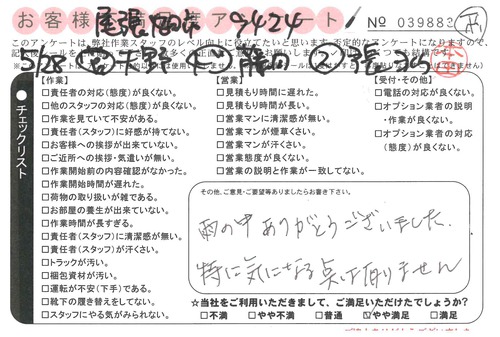 お客様 アンケート
尾張旭市 9424
No 039883
このアンケートは、弊社作業スタッフのレベル向上に役立てたいと思います。否定的なアンケートになりますので、
5/28
チェックリスト
【作業】
□責任者の対応(態度)が良くない。
□他のスタッフの対応(態度)が良くない。
□作業を見ていて不安がある。
□責任者(スタッフ)に好感が持てない。
□お客様への挨拶が出来ていない。
□ご近所への挨拶・気遣いが無い。
□作業開始前の内容確認がなかった。
□作業開始時間が遅れた。
□荷物の取り扱いが雑である。
□お部屋の養生が出来ていない。
□作業時間が長すぎる。
□責任者(スタッフ)に清潔感が無い。
□責任者(スタッフ)が汗くさい。
□トラックが汚い。
□梱包資材が汚い。
□運転が不安(下手)である。
□靴下の履き替えをしてない。
□スタッフにやる気がみられない。
【営業】
□見積もり時間に遅れた。
□見積もり時間が長い。
□営業マンに清潔感が無い。
□営業マンが煙草くさい。
□営業マンが汗くさい。
□営業態度が良くない。
□営業の説明と作業が一致してない。
【受付・その他】
□電話の対応が良くない。
□オプション業者の説明
・作業が良くない。
□オプション業者の対応
(態度)が良くない。
その他、ご意見・ご要望等ありましたらお書き下さい。
雨の中ありがとうございました.
特に気になる点は有りません
☆当社をご利用いただきまして、ご満足いただけたでしょうか?
□不満 □やや不満 □普通 ☑やや満足 □満足